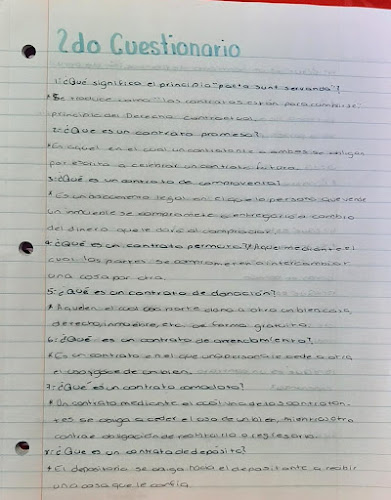 2do Cuestionario
1.-¿Qué significa el principio "pacta sunt servanda"?
* Se traduce como "los contratos están para cumplirse"
principio del Derecho Contractual.
2.-¿Que es un contrato promesa?
* Es aquel en el cual un contratante o ambos se obligan
por escrito a celebrar un contrato futuro.
3.-¿Qué es un contrato de compraventa?
* Es un documento legal en el que la persona que vende
un inmueble se compromete a entregarlo a cambio
del dinero que le dará el comprador
4.-¿Qué es un contrato permuta? Aquel mediante el
cual las partes se comprometen a intercambiar
una cosa por otra.
5.-¿Qué es un contrato de donación?
* Aquel en el cual una parte dona a otra un bien, cosa,
derecho, inmueble, etc. de forma gratuita.
6.-¿Qué es un contrato de arrendamiento?
* Es un contrato en el que una persona le cede a otra
el uso y goce de un bien.
7.-¿Qué es un contrato comodato?
* Un contrato mediante el cual uno de los contratan-
tes se obliga a ceder el uso de un bien, mientras otro
contrae obligación de restituirlo o regresarlo.
¿Que es un contrato de depósito?
* El depositario se obliga hacia el depositante a recibir
una cosa que le confía